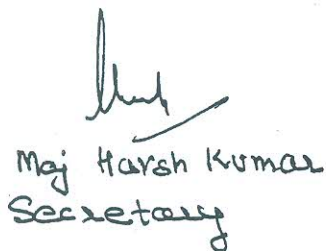 Maj Harsh Kumar
Secretary